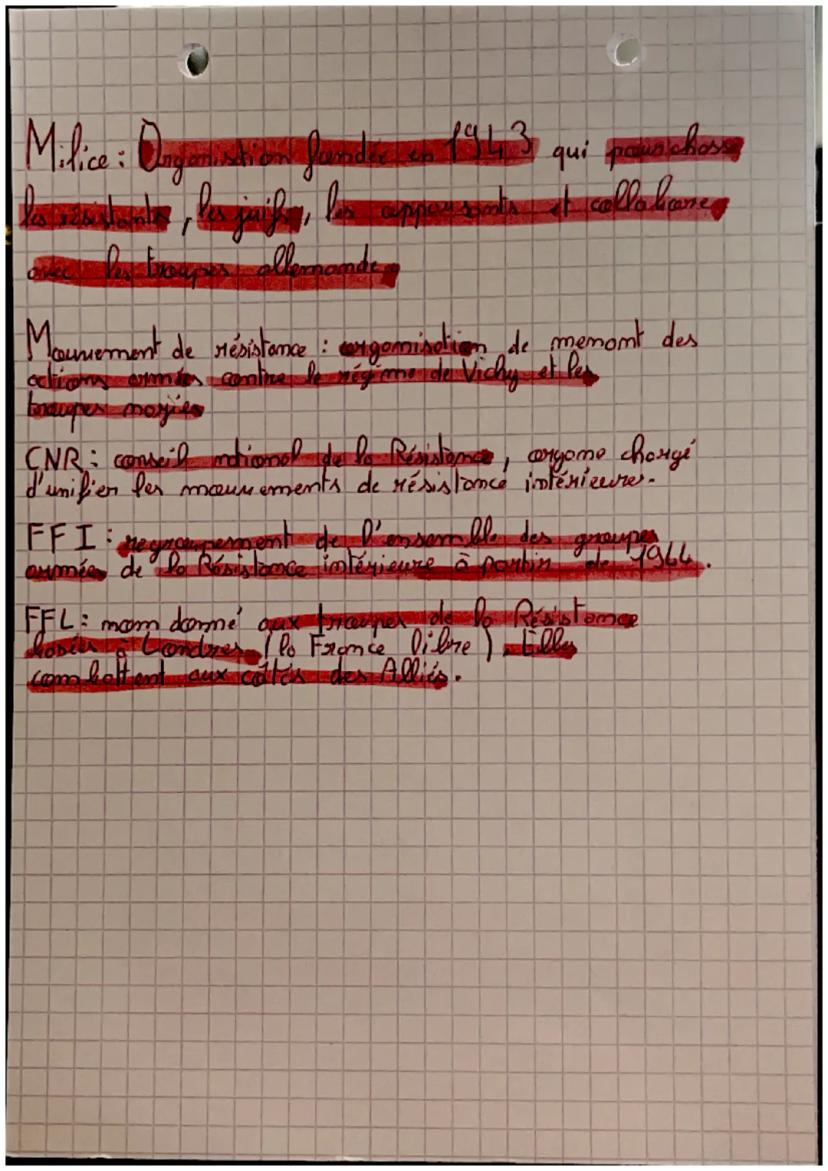 Milice : Organisation fondée en 1943 qui pourchasse
les résistants, les juifs, les opposants et collabore
avec les troupes allemande
Mouvement de résistance : organisation de menant des
actions armées contre le régime de Vichy et les
troupes nazies
CNR : conseil national de la Résistance, organe chargé
d'unifier les mouvements de résistance intérieures.
FFI : regroupement de l'ensemble des groupes
armées de la Résistance intérieure à partir de 1944.
FFL : nom donné aux troupes de la Résistance
basées à Londres (la France libre). Elles
combattent aux côtés des Alliés.